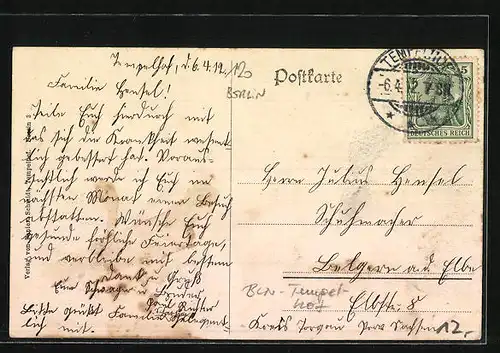 Tempelhof, d. 6.4.12.
Familie Hensel!
teile Euch hierdurch mit
das sich die Krankheit wesent-
lich gebessert hat. Voraus-
sichtlich werde ich Euch im
nächsten Monat einen Besuch
abstatten. Wünsche Euch
gesunde fröhliche Feiertage,
und verbleibe mit bestem
Dank u. Gruß
Euer Schwager u.
Paul
Bitte grüßt Familie
lich mit.
12
BERLIN
Postkarte
TEMPELHOF
-6.4.12 7-8N
5
DEUTSCHES REICH
Herrn Julius Hensel
Schuhmacher
Belgern a.d. Elbe
Elbstr. 8
Kreis Torgau Prov Sachsen
BLN-Tempel-
hof
12,-
Verlag von